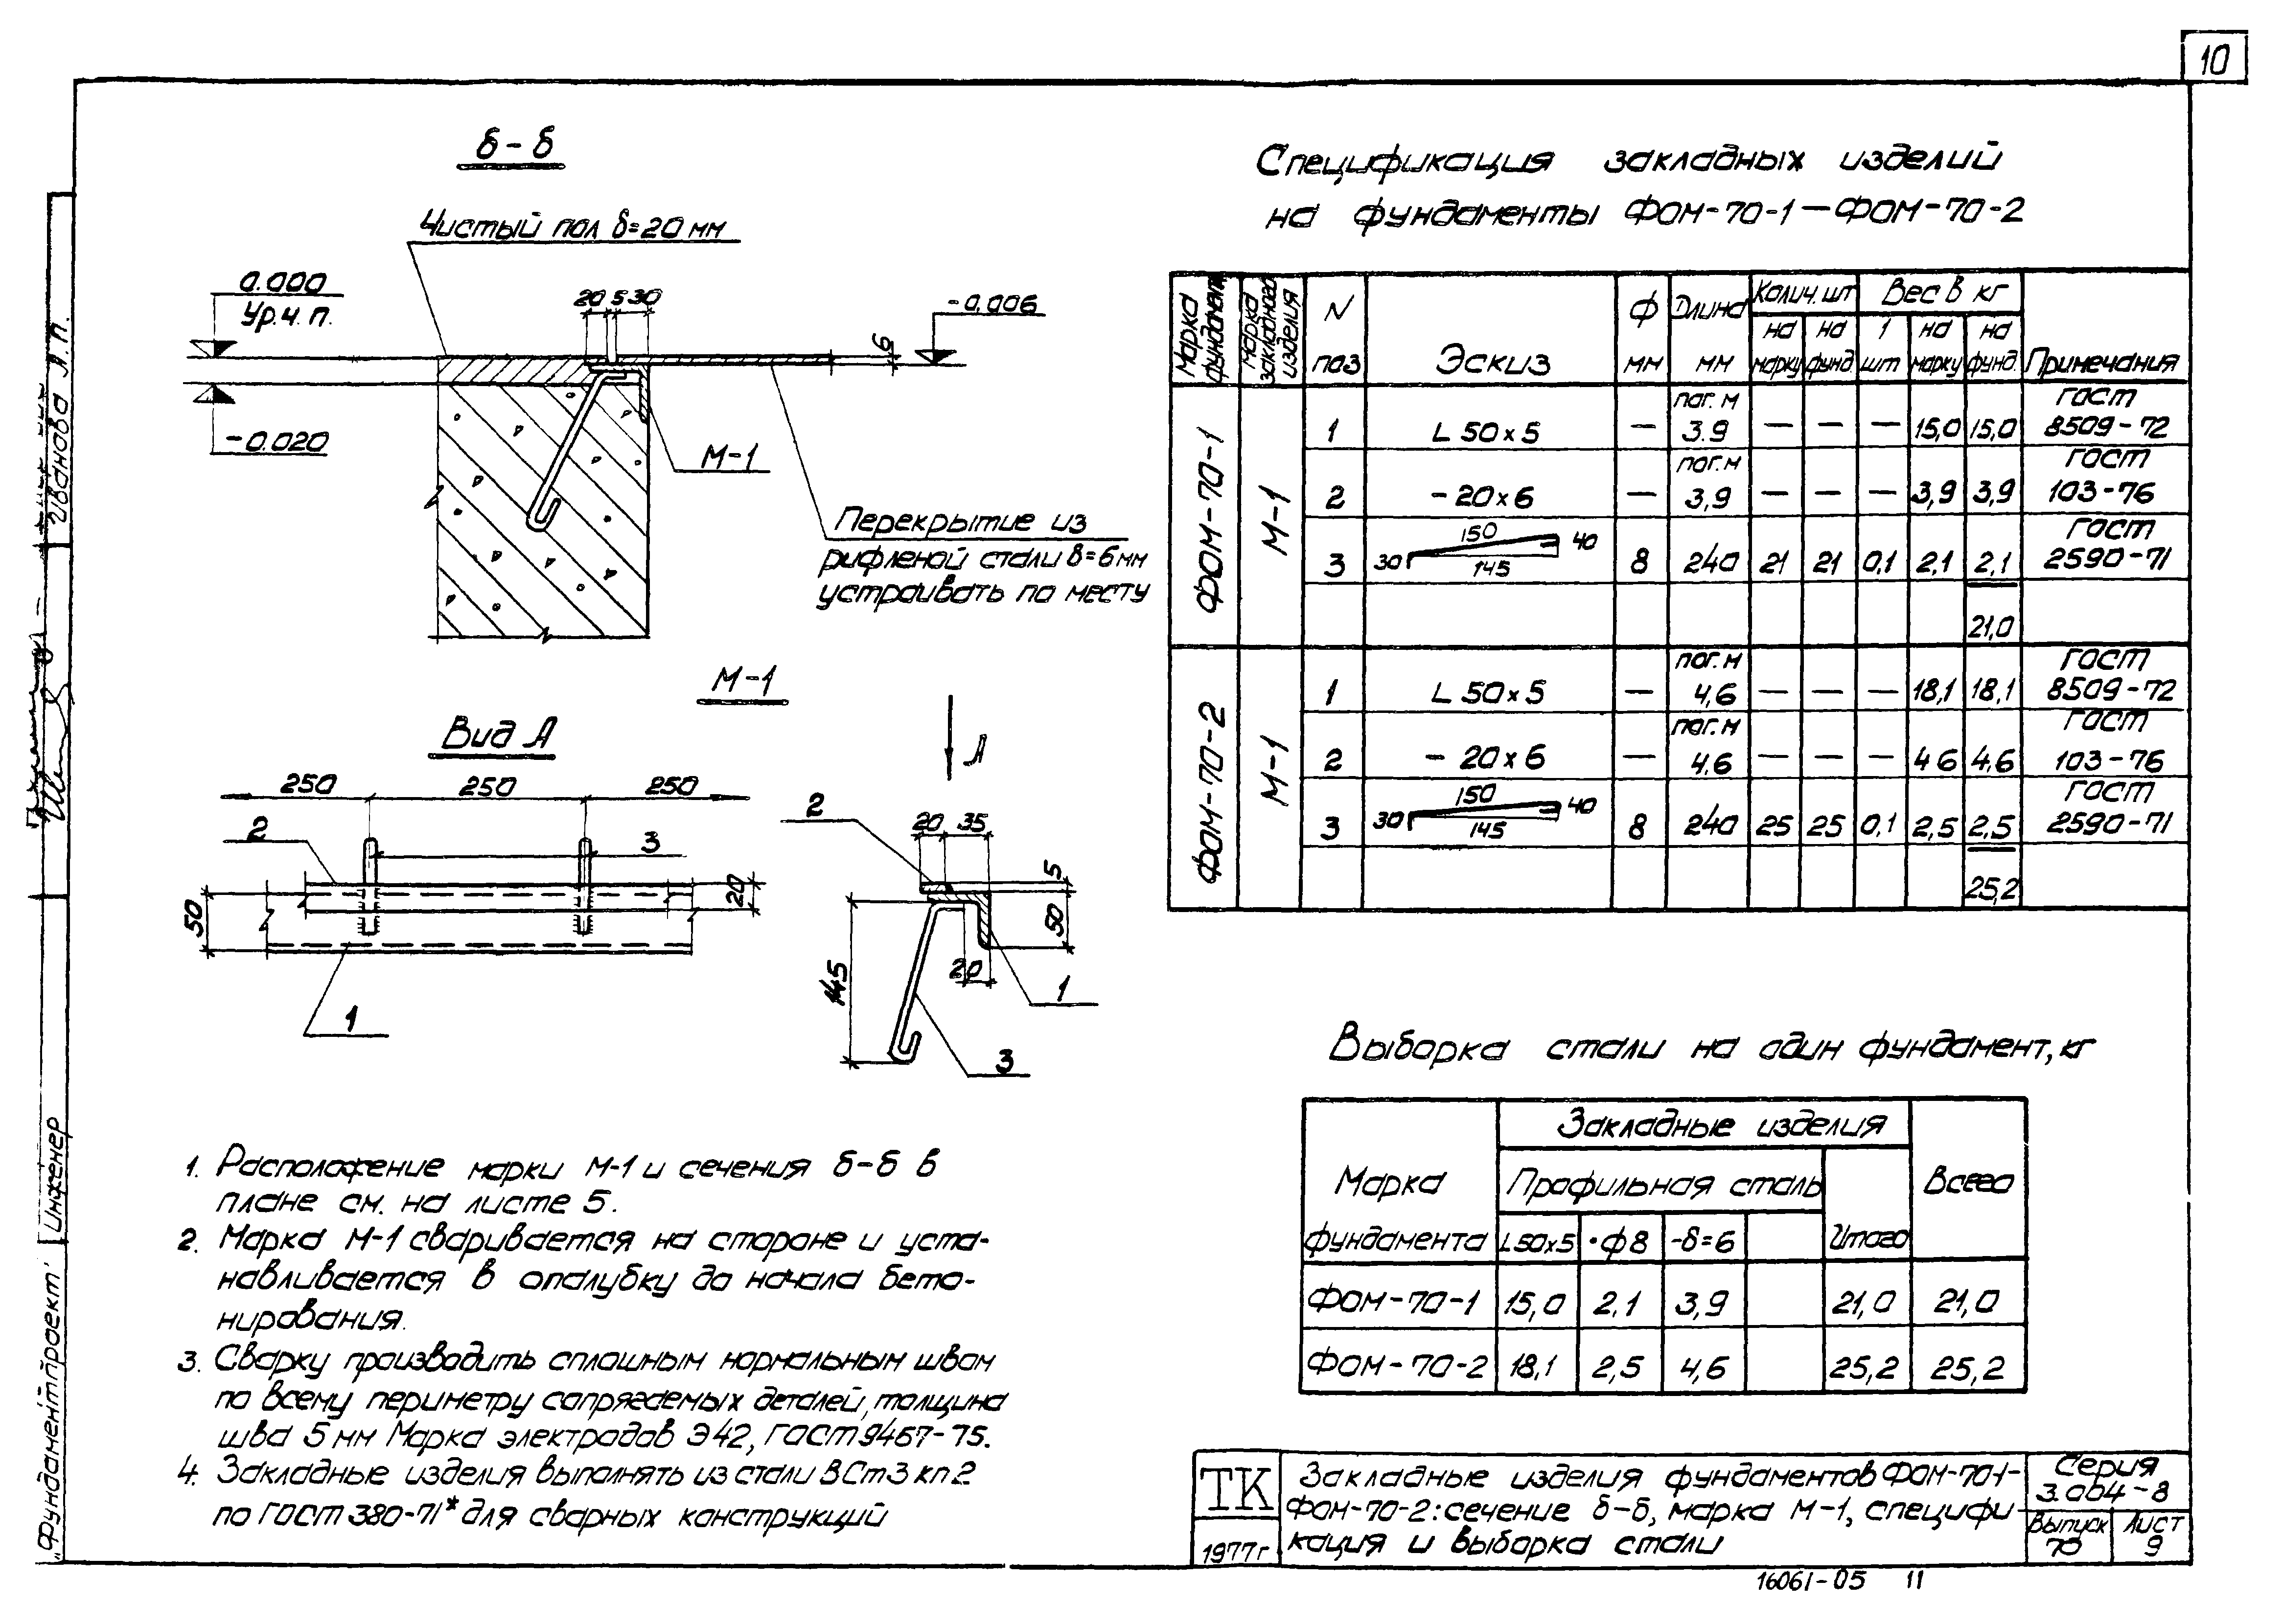 10
б-б
Чистый пол δ=20 мм
0.000
Ур.ч.п.
20 5 30
6
-0.006
-0.020
М-1
Перекрытие из
рифленой стали δ=6мм
устраивать по месту
М-1
Вид А
А
250 250 250
2
3
50
20
1
2
20 35
5
50
145
20
1
3
1. Расположение марки М-1 и сечения б-б в
плане см. на листе 5.
2. Марка М-1 сваривается на стороне и уста-
навливается в опалубку до начала бето-
нирования.
3. Сварку производить сплошным нормальным швом
по всему периметру сопрягаемых деталей, толщина
шва 5 мм Марка электродов Э42, ГОСТ 9467-75.
4. Закладные изделия выполнять из стали ВСт3 кп2
по ГОСТ 380-71* для сварных конструкций
Спецификация закладных изделий
на фундаменты ФОМ-70-1—ФОМ-70-2
Марка фундамента Марка закладного изделия N поз Эскиз Ф мм Длина мм Колич. шт Вес в кг Примечания
на марку на фунд 1 шт на марку на фунд.
ФОМ-70-1 М-1
1 L 50×5 — пог. м 3.9 — — — 15,0 15,0 ГОСТ 8509-72
2 - 20×6 — пог. м 3,9 — — — 3,9 3,9 ГОСТ 103-76
3 30 150 145 40 8 240 21 21 0,1 2,1 2,1 ГОСТ 2590-71
21,0
ФОМ-70-2 М-1
1 L 50×5 — пог. м 4,6 — — — 18,1 18,1 ГОСТ 8509-72
2 - 20×6 — пог. м 4.6 — — — 4 6 4,6 ГОСТ 103-76
3 30 150 145 40 8 240 25 25 0,1 2,5 2,5 ГОСТ 2590-71
25,2
Выборка стали на один фундамент, кг
Марка фундамента Закладные изделия Всего
Профильная сталь Итого
L50×5 •ф8 -δ=6
ФОМ-70-1 15,0 2.1 3,9 21,0 21,0
ФОМ-70-2 18,1 2,5 4,6 25,2 25,2
ТК
1977г
Закладные изделия фундаментов ФОМ-70-1-
ФОМ-70-2: сечение б-б, марка М-1, специфи-
кация и выборка стали
Серия
3.004-8
Выпуск 70
Лист 9
16061-05 11
Иванова Л.П.
Инженер
„Фундаментпроект"